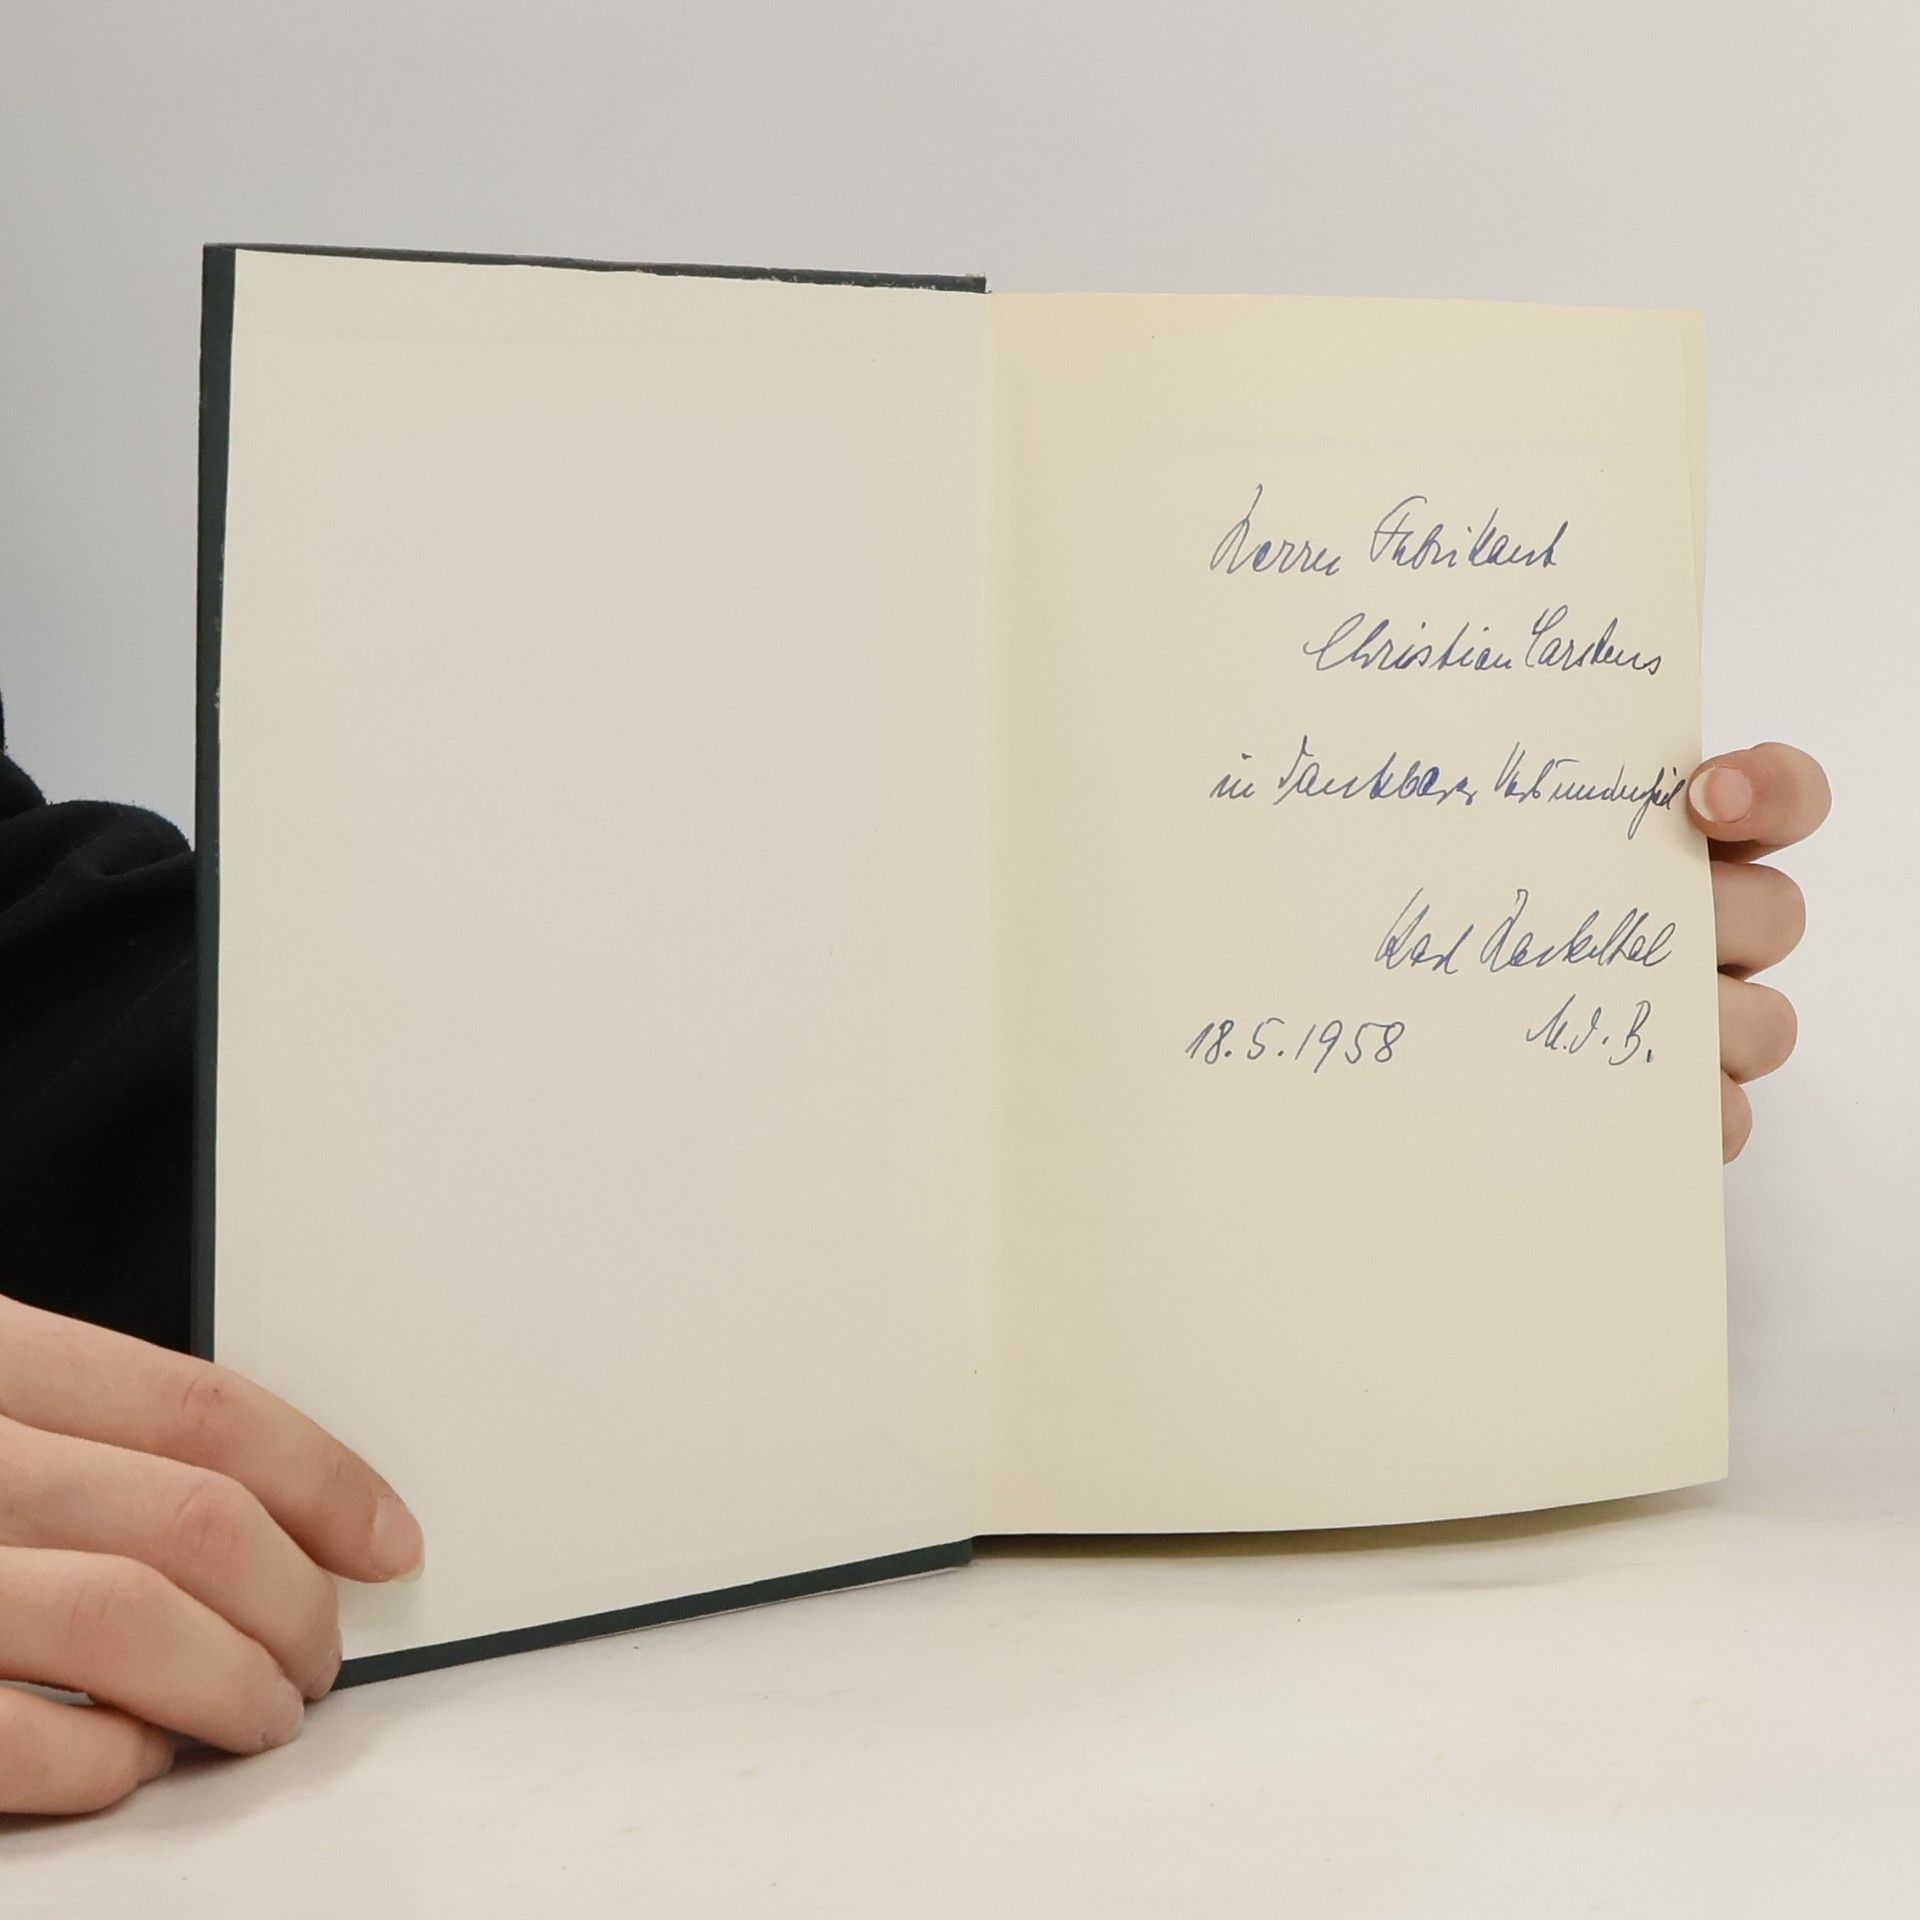 Herrn Fabrikant
Christian Carstens
in dankbarer Verbundenheit
Karl Hackethal
18.5.1958 M.d.B.